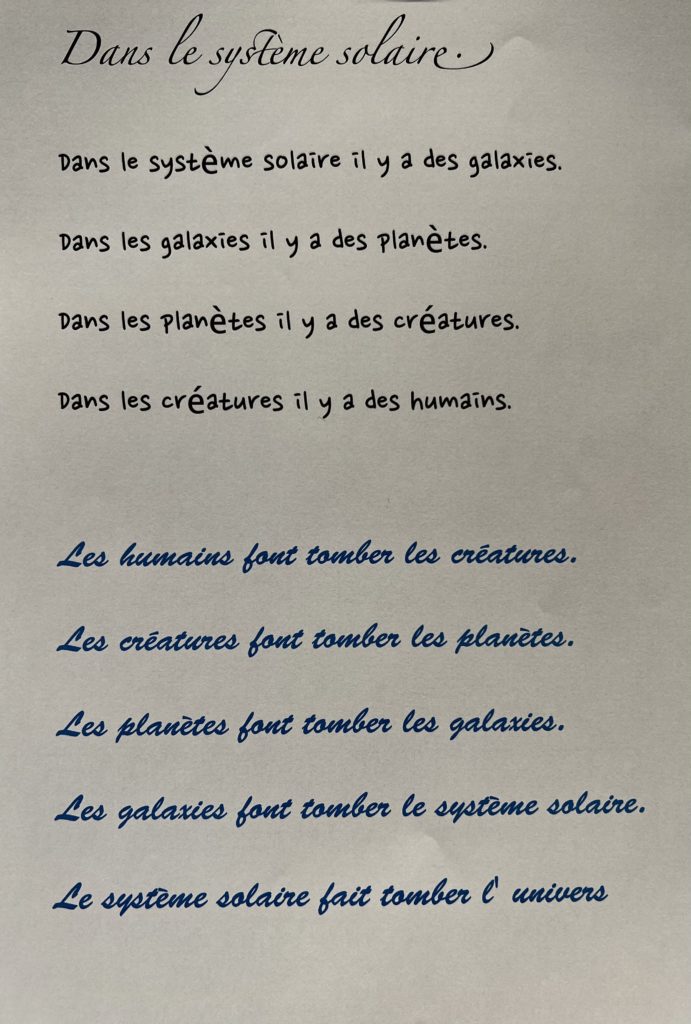 Dans le système solaire.
Dans le système solaire il y a des galaxies.
Dans les galaxies il y a des planètes.
Dans les planètes il y a des créatures.
Dans les créatures il y a des humains.
Les humains font tomber les créatures.
Les créatures font tomber les planètes.
Les planètes font tomber les galaxies.
Les galaxies font tomber le système solaire.
Le système solaire fait tomber l' univers